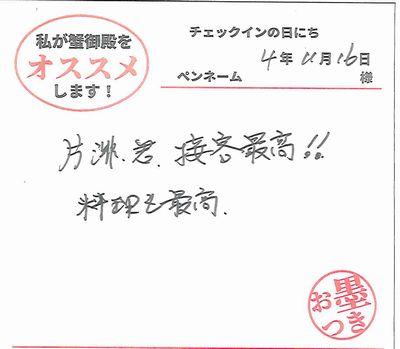 私が蟹御殿を
オススメ
します！
チェックインの日にち
4年11月16日
ペンネーム 様
片渕君、接客最高!!
料理も最高、
お墨つき